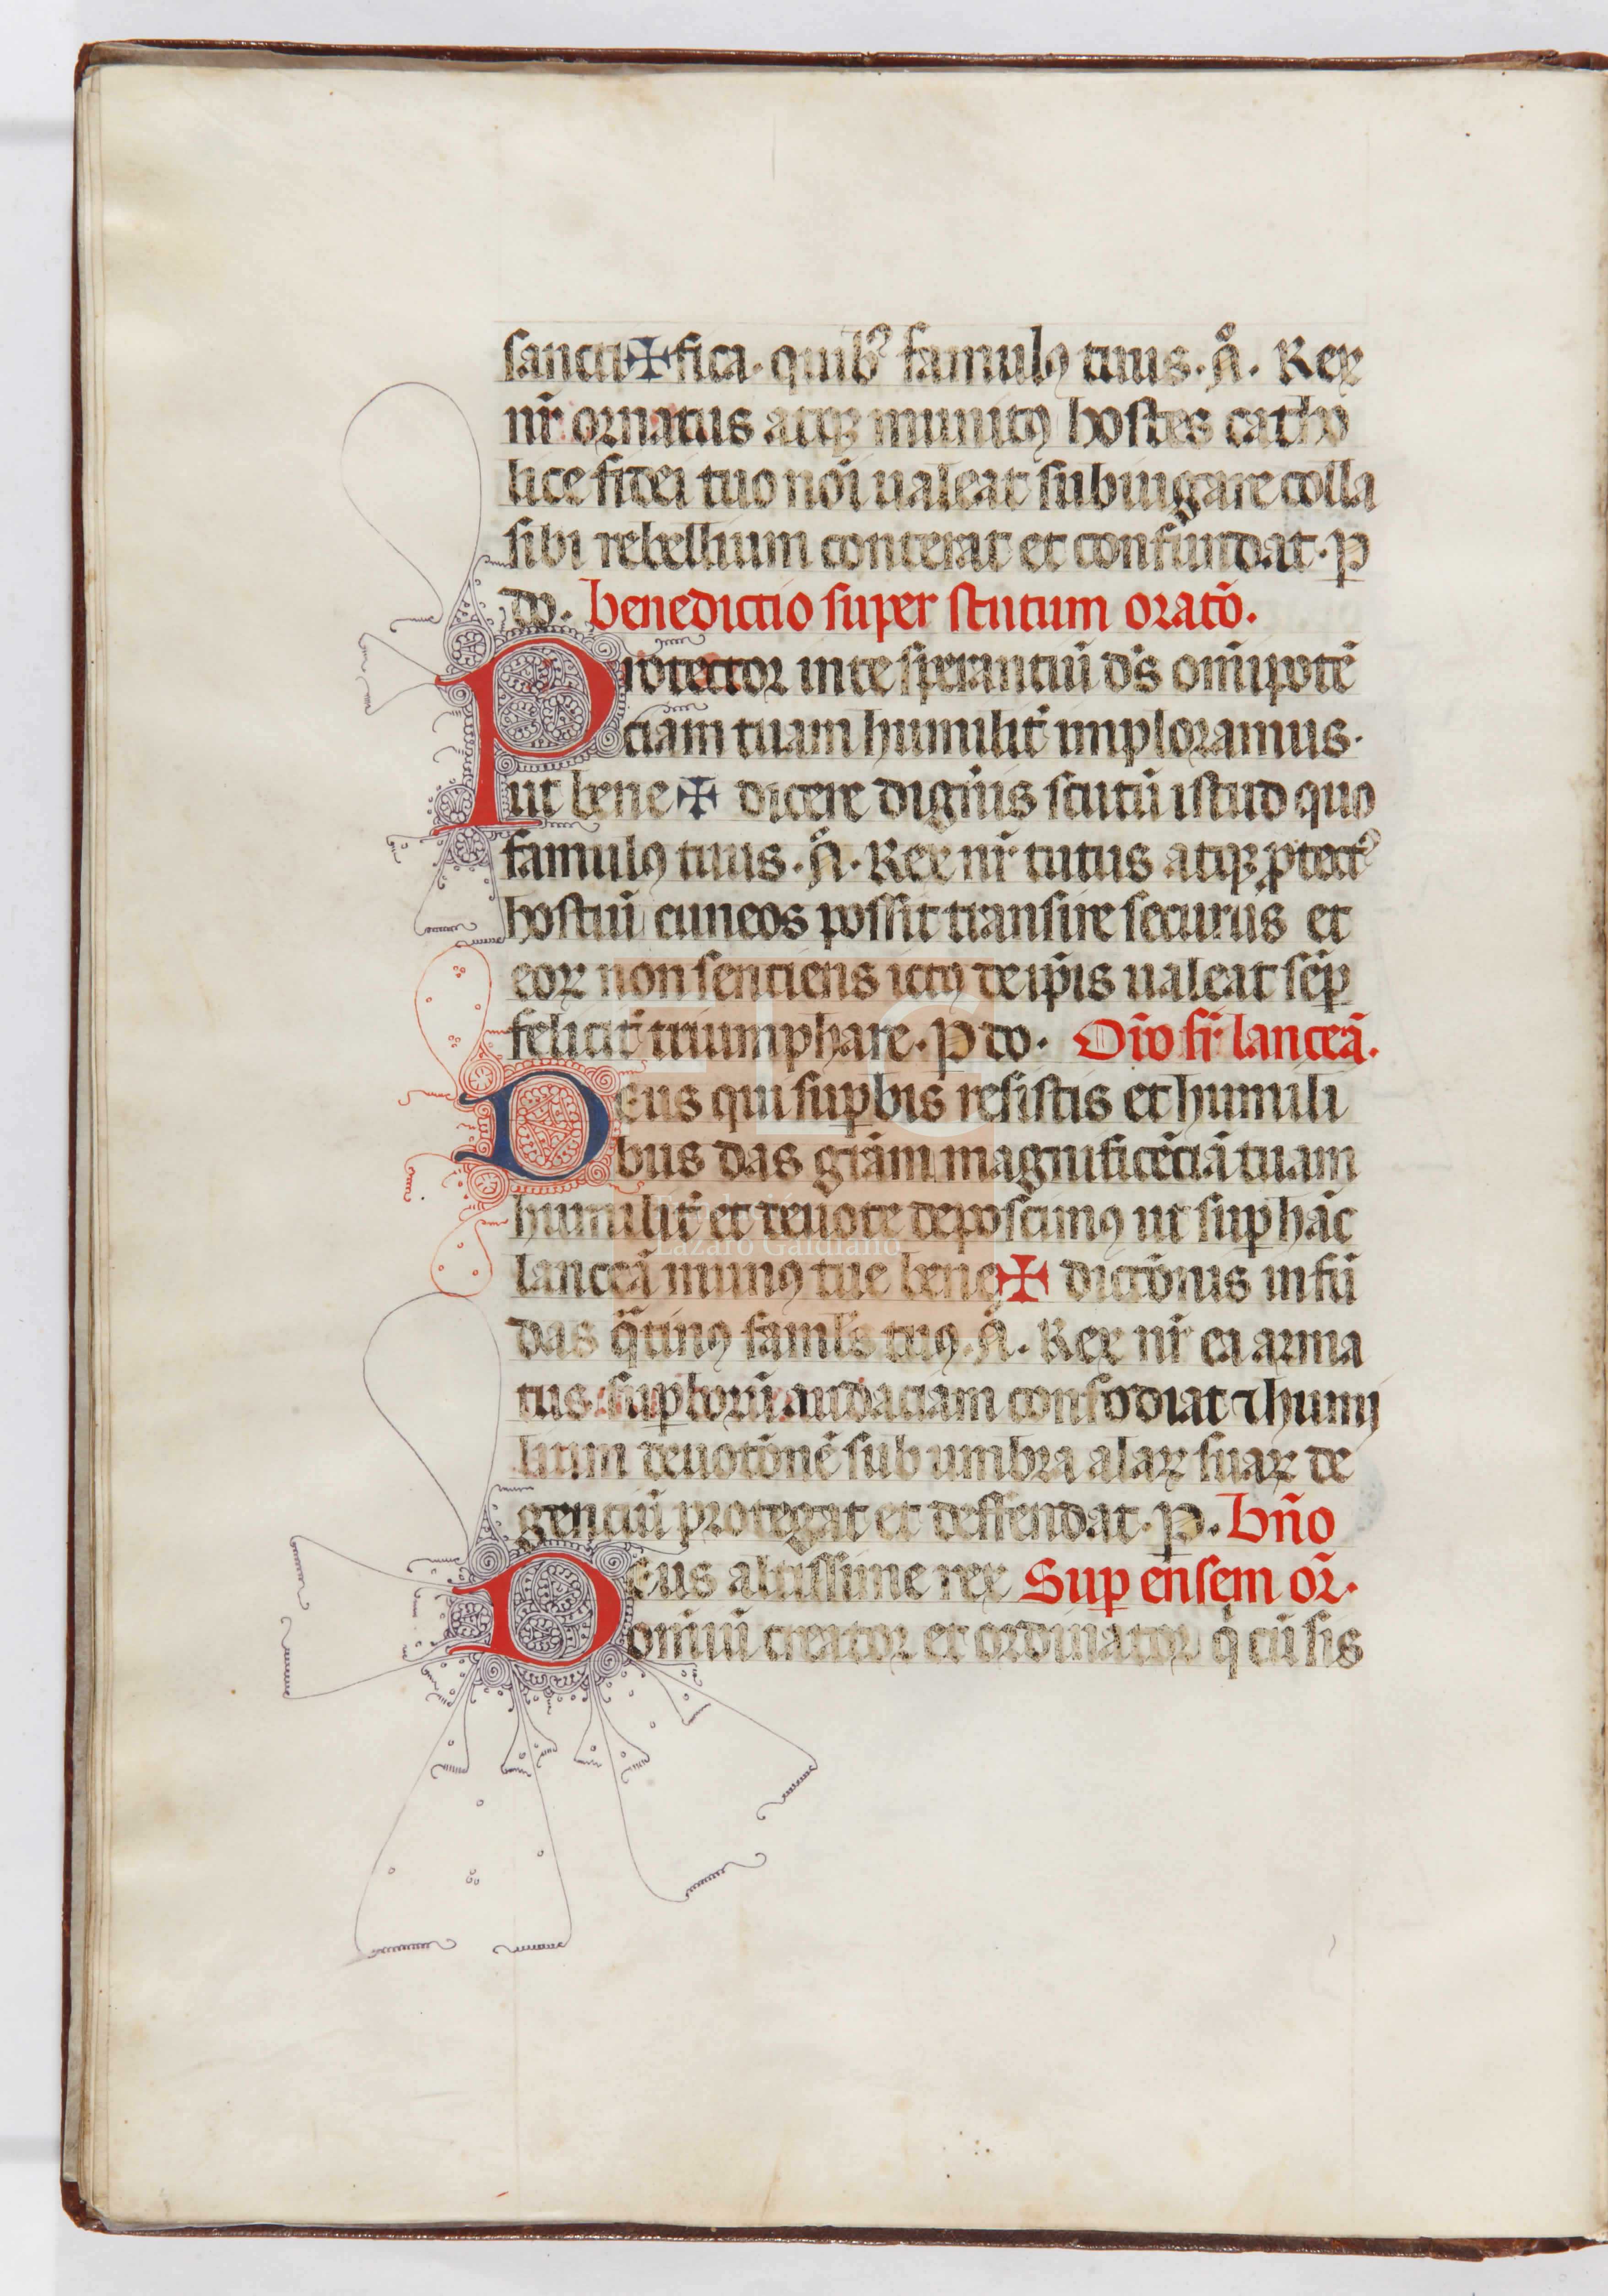 sancti✠fica. quibꝰ famulꝰ tuus. A. Rex
nr̄ ornatus atqꝫ munitꝰ hostes catho
lice fidei tuo noī ualeat subiugare colla
sibi rebellium conterat et confundat. p
do. benedictio super scutum orato᷒.
Protector in te sperantiū ds̄ om̄ipotē
ciam tuam humilit̄ imploramus.
ut bene✠ dicere digneris scutū istud quo
famulꝰ tuus. A. Rex nr̄ tutus atqꝫ ꝓtectꝰ
hostiū cuneos possit transire securus et
eoꝝ non senciens ictꝰ de ip̄is ualeat semꝑ
felicit̄ triumphare. P do. Or̄o sr̄ lanceā.
Deus qui suꝑbis resistis et humili
bus das gr̄am magnificēciā tuam
humilit̄ et deuote deposcimꝰ ut suꝑ hāc
lanceā munꝰ tue bene✠ dictōnis infū
das q̄tinꝰ famlꝰs tuꝰ. A. Rex nr̄ ea arma
tus suꝑborū audaciam confodiat ⁊ humi
lium deuotōnē sub umbra alaꝝ suaꝝ de
genciū protegat et deffendat. p. Bn̄o
Deus altissime rex Suꝑ ensem or̄.
om̄iū creator et ordinator q̇ cū sis
Fundación
Lázaro Galdiano